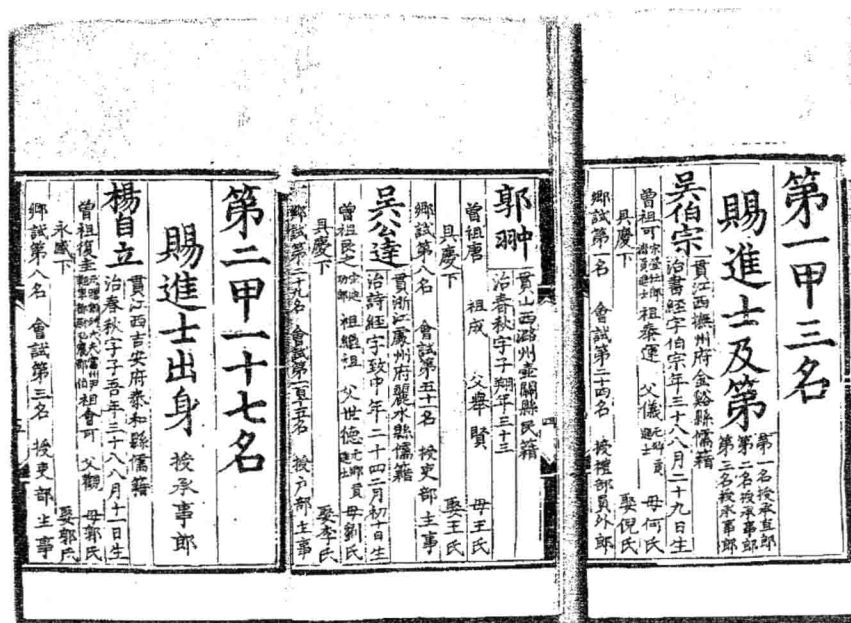 第一甲三名
賜進士及第
第一名授承直郎
第二名授承事郎
第三名授承事郎
吳伯宗
貫江西撫州府金谿縣儒籍
治書經字伯宗年三十八八月二十九日生
曾祖可
祖泰運 父儀 母何氏
具慶下 娶倪氏
鄉試第一名 會試第二十四名 授禮部員外郎
郭翀
貫山西潞州壺關縣民籍
治春秋字子翔年三十三
曾祖唐 祖成 父舉賢 母王氏
具慶下 娶王氏
鄉試第八名 會試第五十一名 授吏部主事
吳公達
貫浙江處州府麗水縣儒籍
治詩經字致中年二十四二月初十日生
曾祖民之
祖繼祖 父世德 母劉氏
具慶下 娶李氏
鄉試第二十九名 會試第一百十五名 授户部主事
第二甲一十七名
賜進士出身 授承事郎
楊自立
貫江西吉安府泰和縣儒籍
治春秋字子吾年三十八八月十一日生
曾祖復圭
祖會可 父觀 母郭氏
永感下 娶郭氏
鄉試第八名 會試第三名 授吏部主事